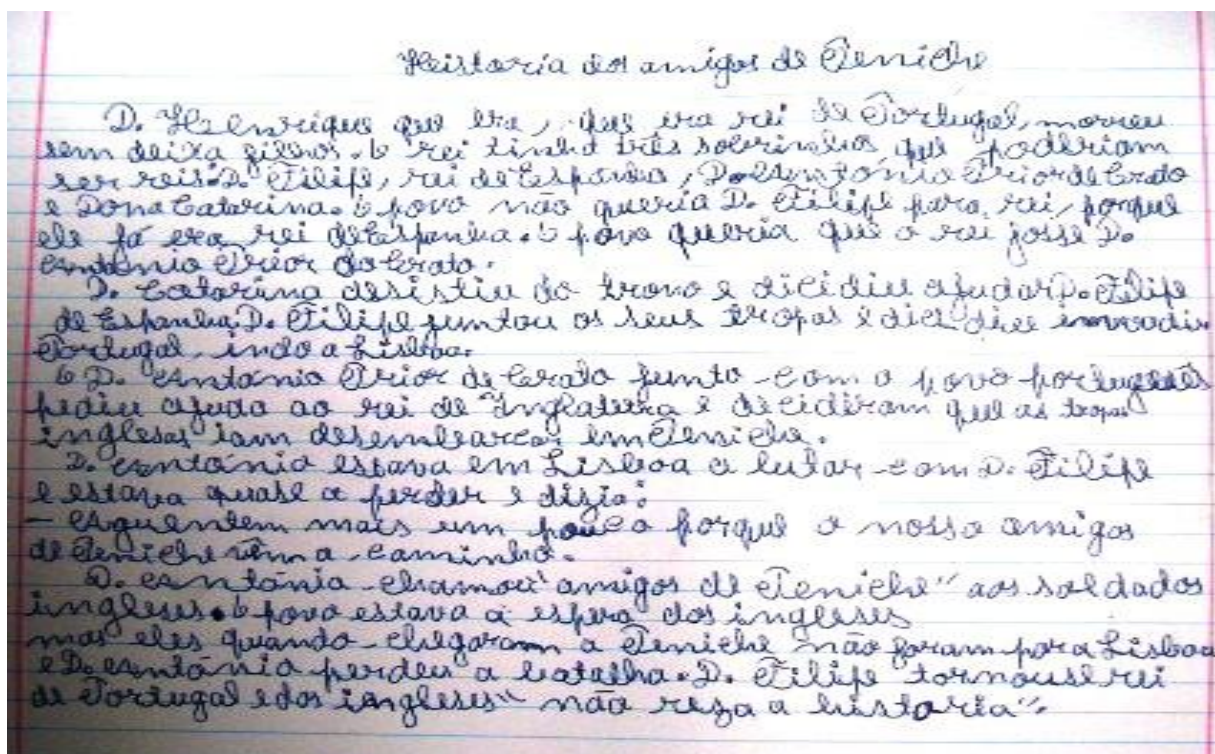 Heistoria dos amigos de Peniche
D. Henrique que era, que era rei de Portugal, morreu
sem deixa filhos. O rei tinha três sobrinhos que poderiam
ser reis: D. Filipe, rei de Espanha, D. António Prior de Crato
e Dona Catarina. O povo não queria D. Filipe para rei, porque
ele já era rei de Espanha. O povo queria que o rei fosse D.
António Prior do Crato.
D. Catarina desistiu do trono e dicidiu ajudar D. Filipe
de Espanha. D. Filipe juntou os seus tropas e dicidiu invadir
Portugal, indo a Lisboa.
O D. António Prior de Crato junto com o povo português
pediu ajuda ao rei de Inglaterra e decidiram que as tropas
inglesas iam desembarcar em Peniche.
D. António estava em Lisboa a lutar com D. Filipe
e estava quase a perder e dizia:
- Aguentem mais um pouco porque o nosso amigos
de Peniche vêm a caminho.
D. António chamou "amigos de Peniche" aos soldados
ingleses. O povo estava à espera dos ingleses
mas eles quando chegaram a Peniche não foram para Lisboa
e D. António perdeu a batalha. D. Filipe tornouse rei
de Portugal e dos ingleses "não reza a historia".